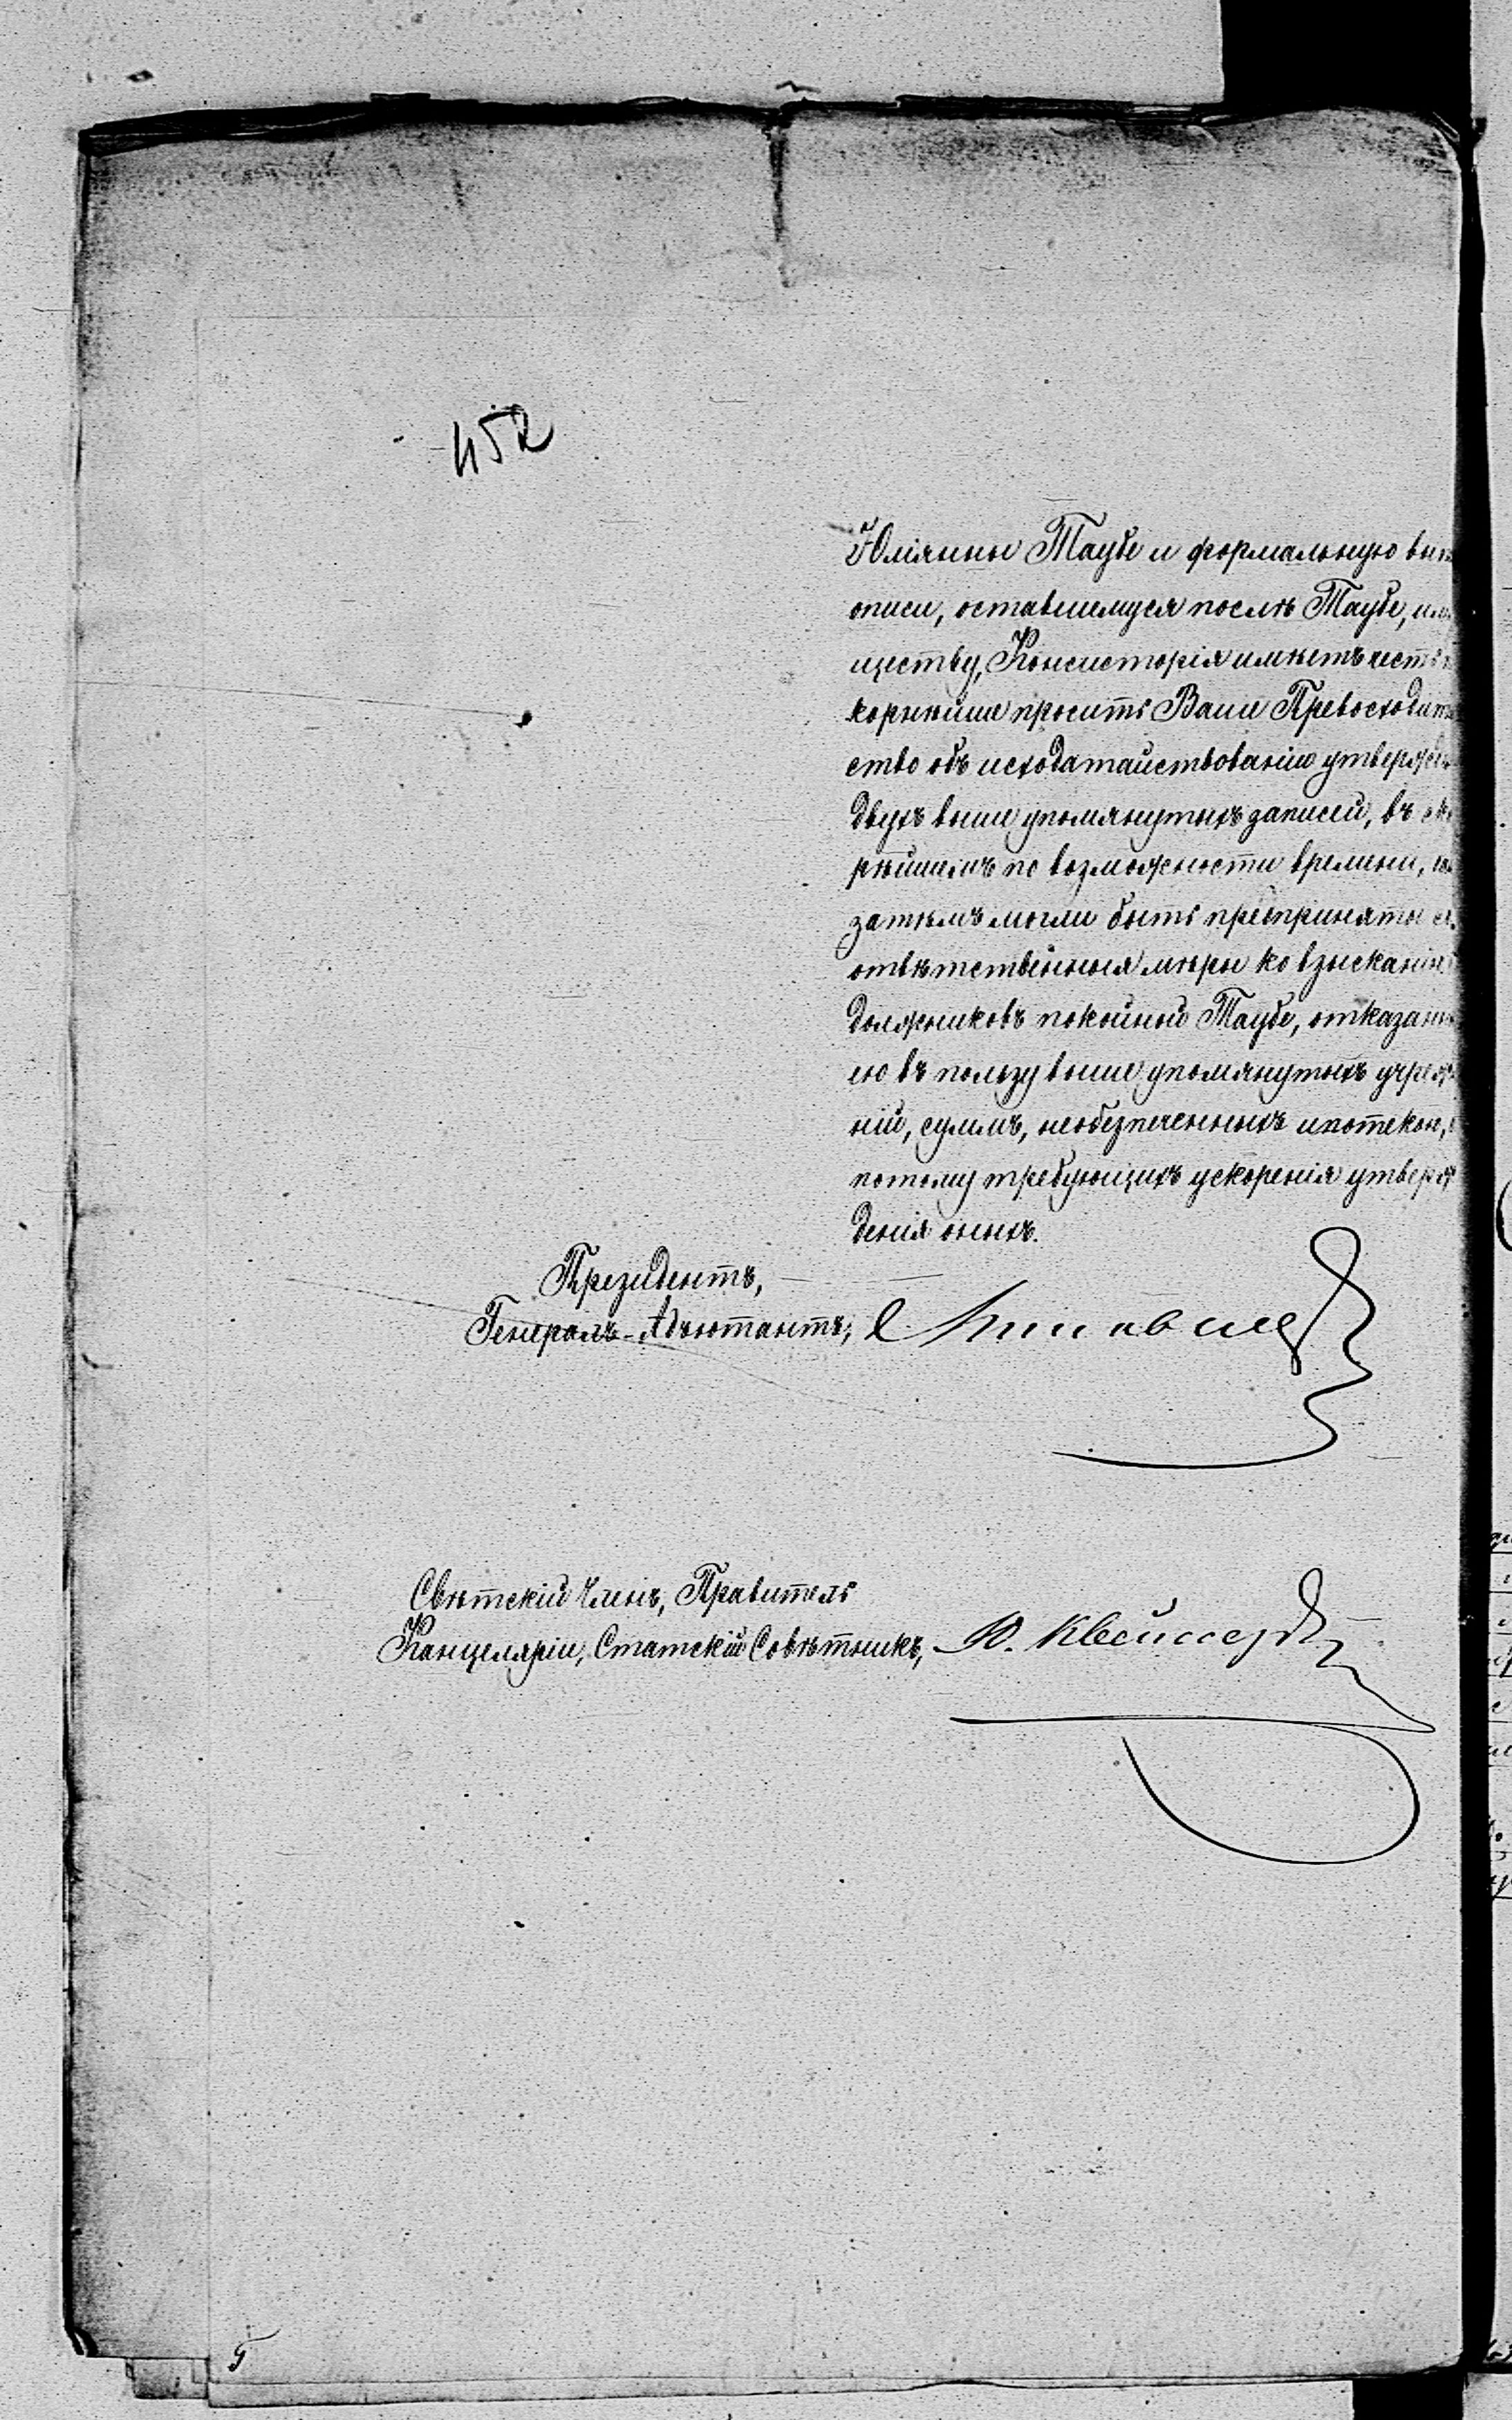 452
Юліянны Таубе и формальную вып
описи, оставшемуся послѣ Таубе, иму
ществу, Консисторія имѣетъ честь по
корнѣйше просить Ваше Превосходитель
ство объ исходатайствованіи утвержде
двухъ выше упомянутыхъ записей, въ ско
рѣйшемъ по возможности времени,
затѣмъ могли быть предприняты со
отвѣтственныя мѣры ко взысканію
должниковъ покойной Таубе, отказан
ею въ пользу выше упомянутыхъ учреж
ній, суммъ, необезпеченныхъ ипотекою,
потому требующихъ ускоренія утверж
денія оныхъ.
Президентъ,
Генералъ-Адъютантъ,
Свѣтскій Членъ, Правитель
Канцеляріи, Статскій Совѣтникъ, Ю.